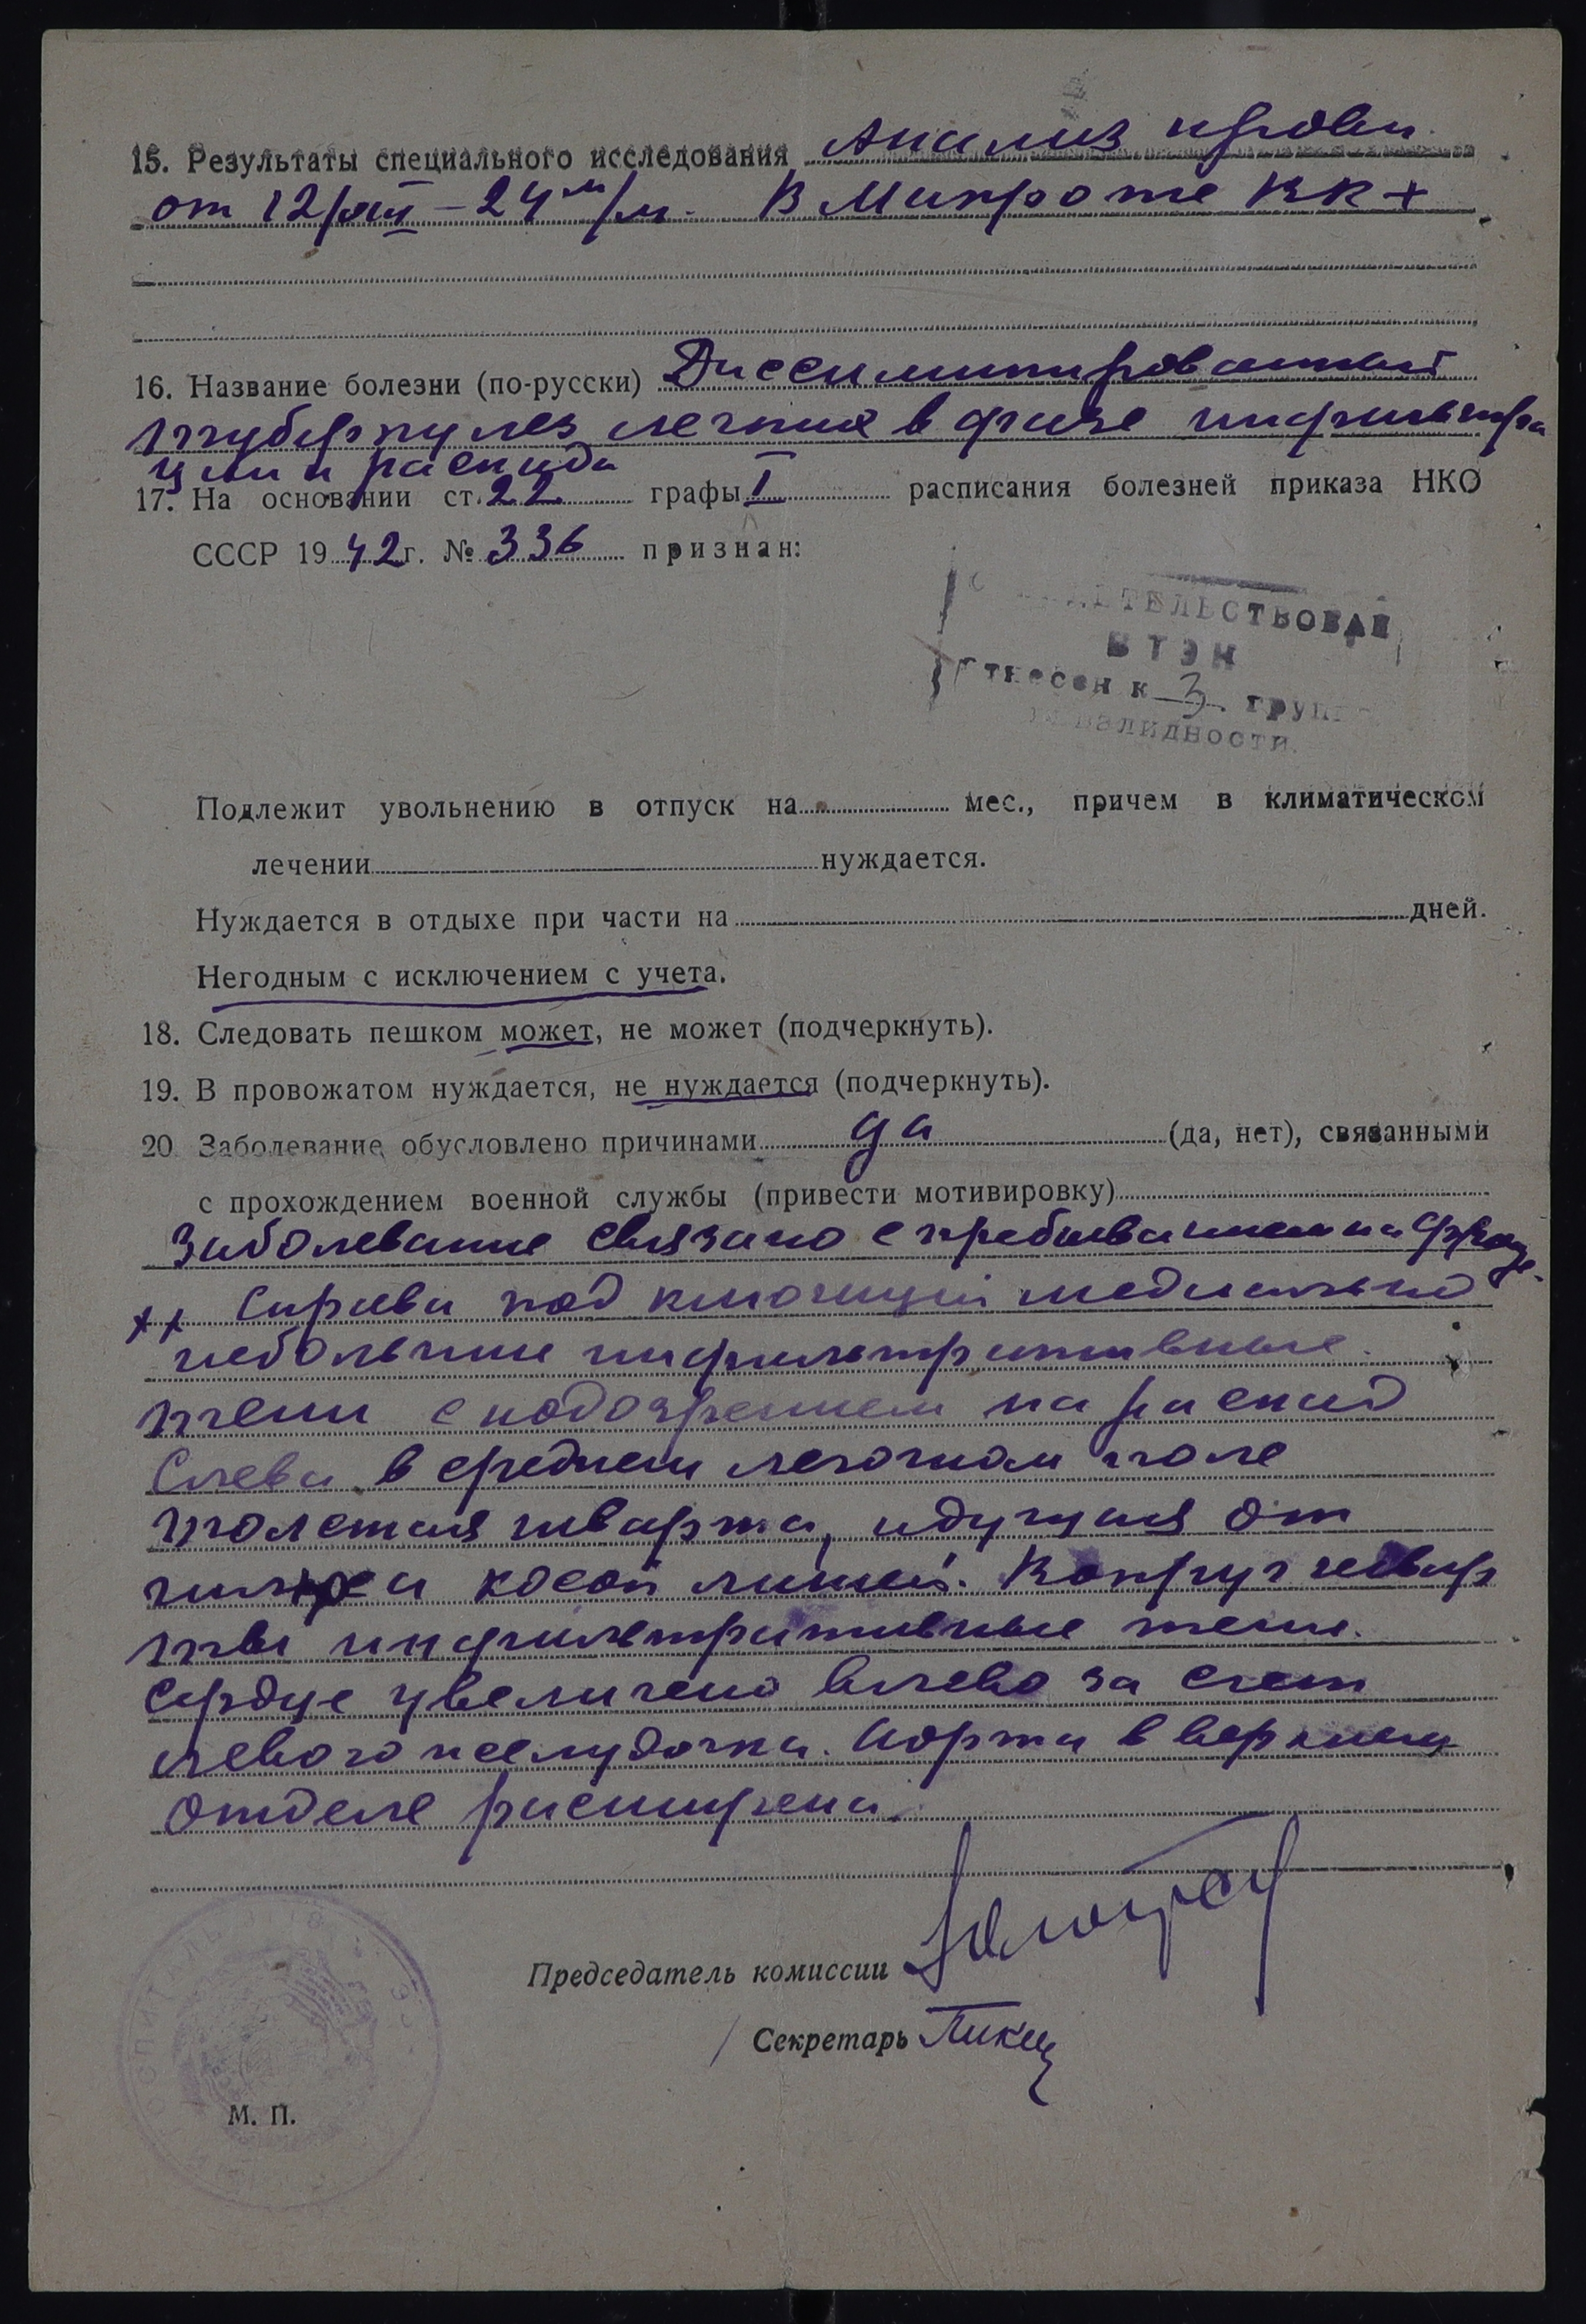 15. Результаты специального исследования Анализ крови
от 12/XII – 24 м/м. В Микроте ВК +
16. Название болезни (по-русски) Диссиминированный
туберкулез легких в фазе инфильтра
ции и распада
17. На основании ст. 22 графы I расписания болезней приказа НКО
СССР 19 42 г. № 336 признан:
ТЕЛЬСТВОВАН
ВТЭК
тнесен к 3 груп
валидности
Подлежит увольнению в отпуск на мес., причем в климатическом
лечении нуждается.
Нуждается в отдыхе при части на дней.
Негодным с исключением с учета.
18. Следовать пешком может, не может (подчеркнуть).
19. В провожатом нуждается, не нуждается (подчеркнуть).
20 Заболевание обусловлено причинами да (да, нет), связанными
с прохождением военной службы (привести мотивировку)
Заболевание связано с пребыванием на фронте.
++ Справа под ключицей медиально
небольшие инфильтративные
тени с подозрением на распад
Слева в среднем легочном поле
толстая шварта, идущая от
косой линией. Вокруг швар
ты инфильтративные тени.
Сердце увеличено влево за счет
левого желудочка. Аорта в верхнем
отделе расширена.
Председатель комиссии
Секретарь
М. П.